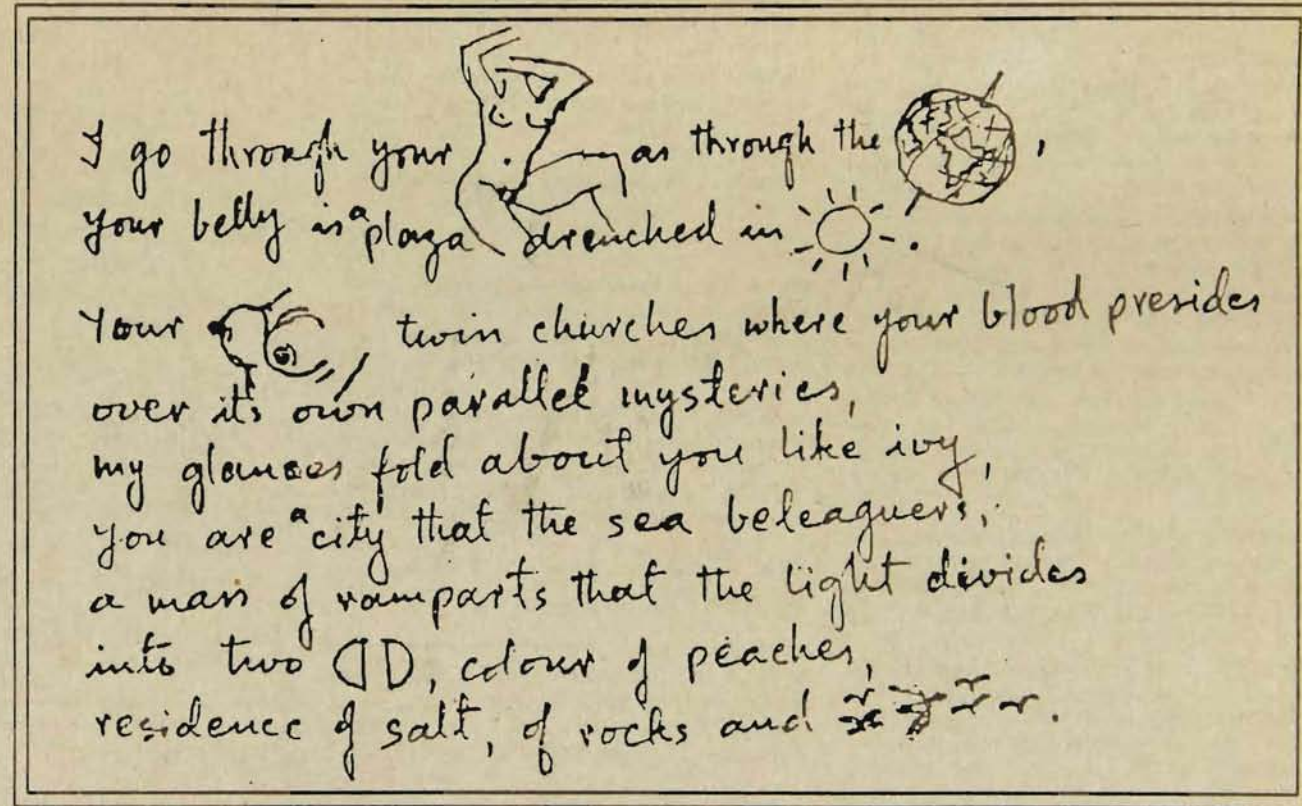 I go through your as through the ,
your belly is a plaza drenched in .
Your twin churches where your blood presides
over its own parallel mysteries,
my glances fold about you like ivy,
you are a city that the sea beleaguers,
a mass of ramparts that the light divides
into two , colour of peaches,
residence of salt, of rocks and .